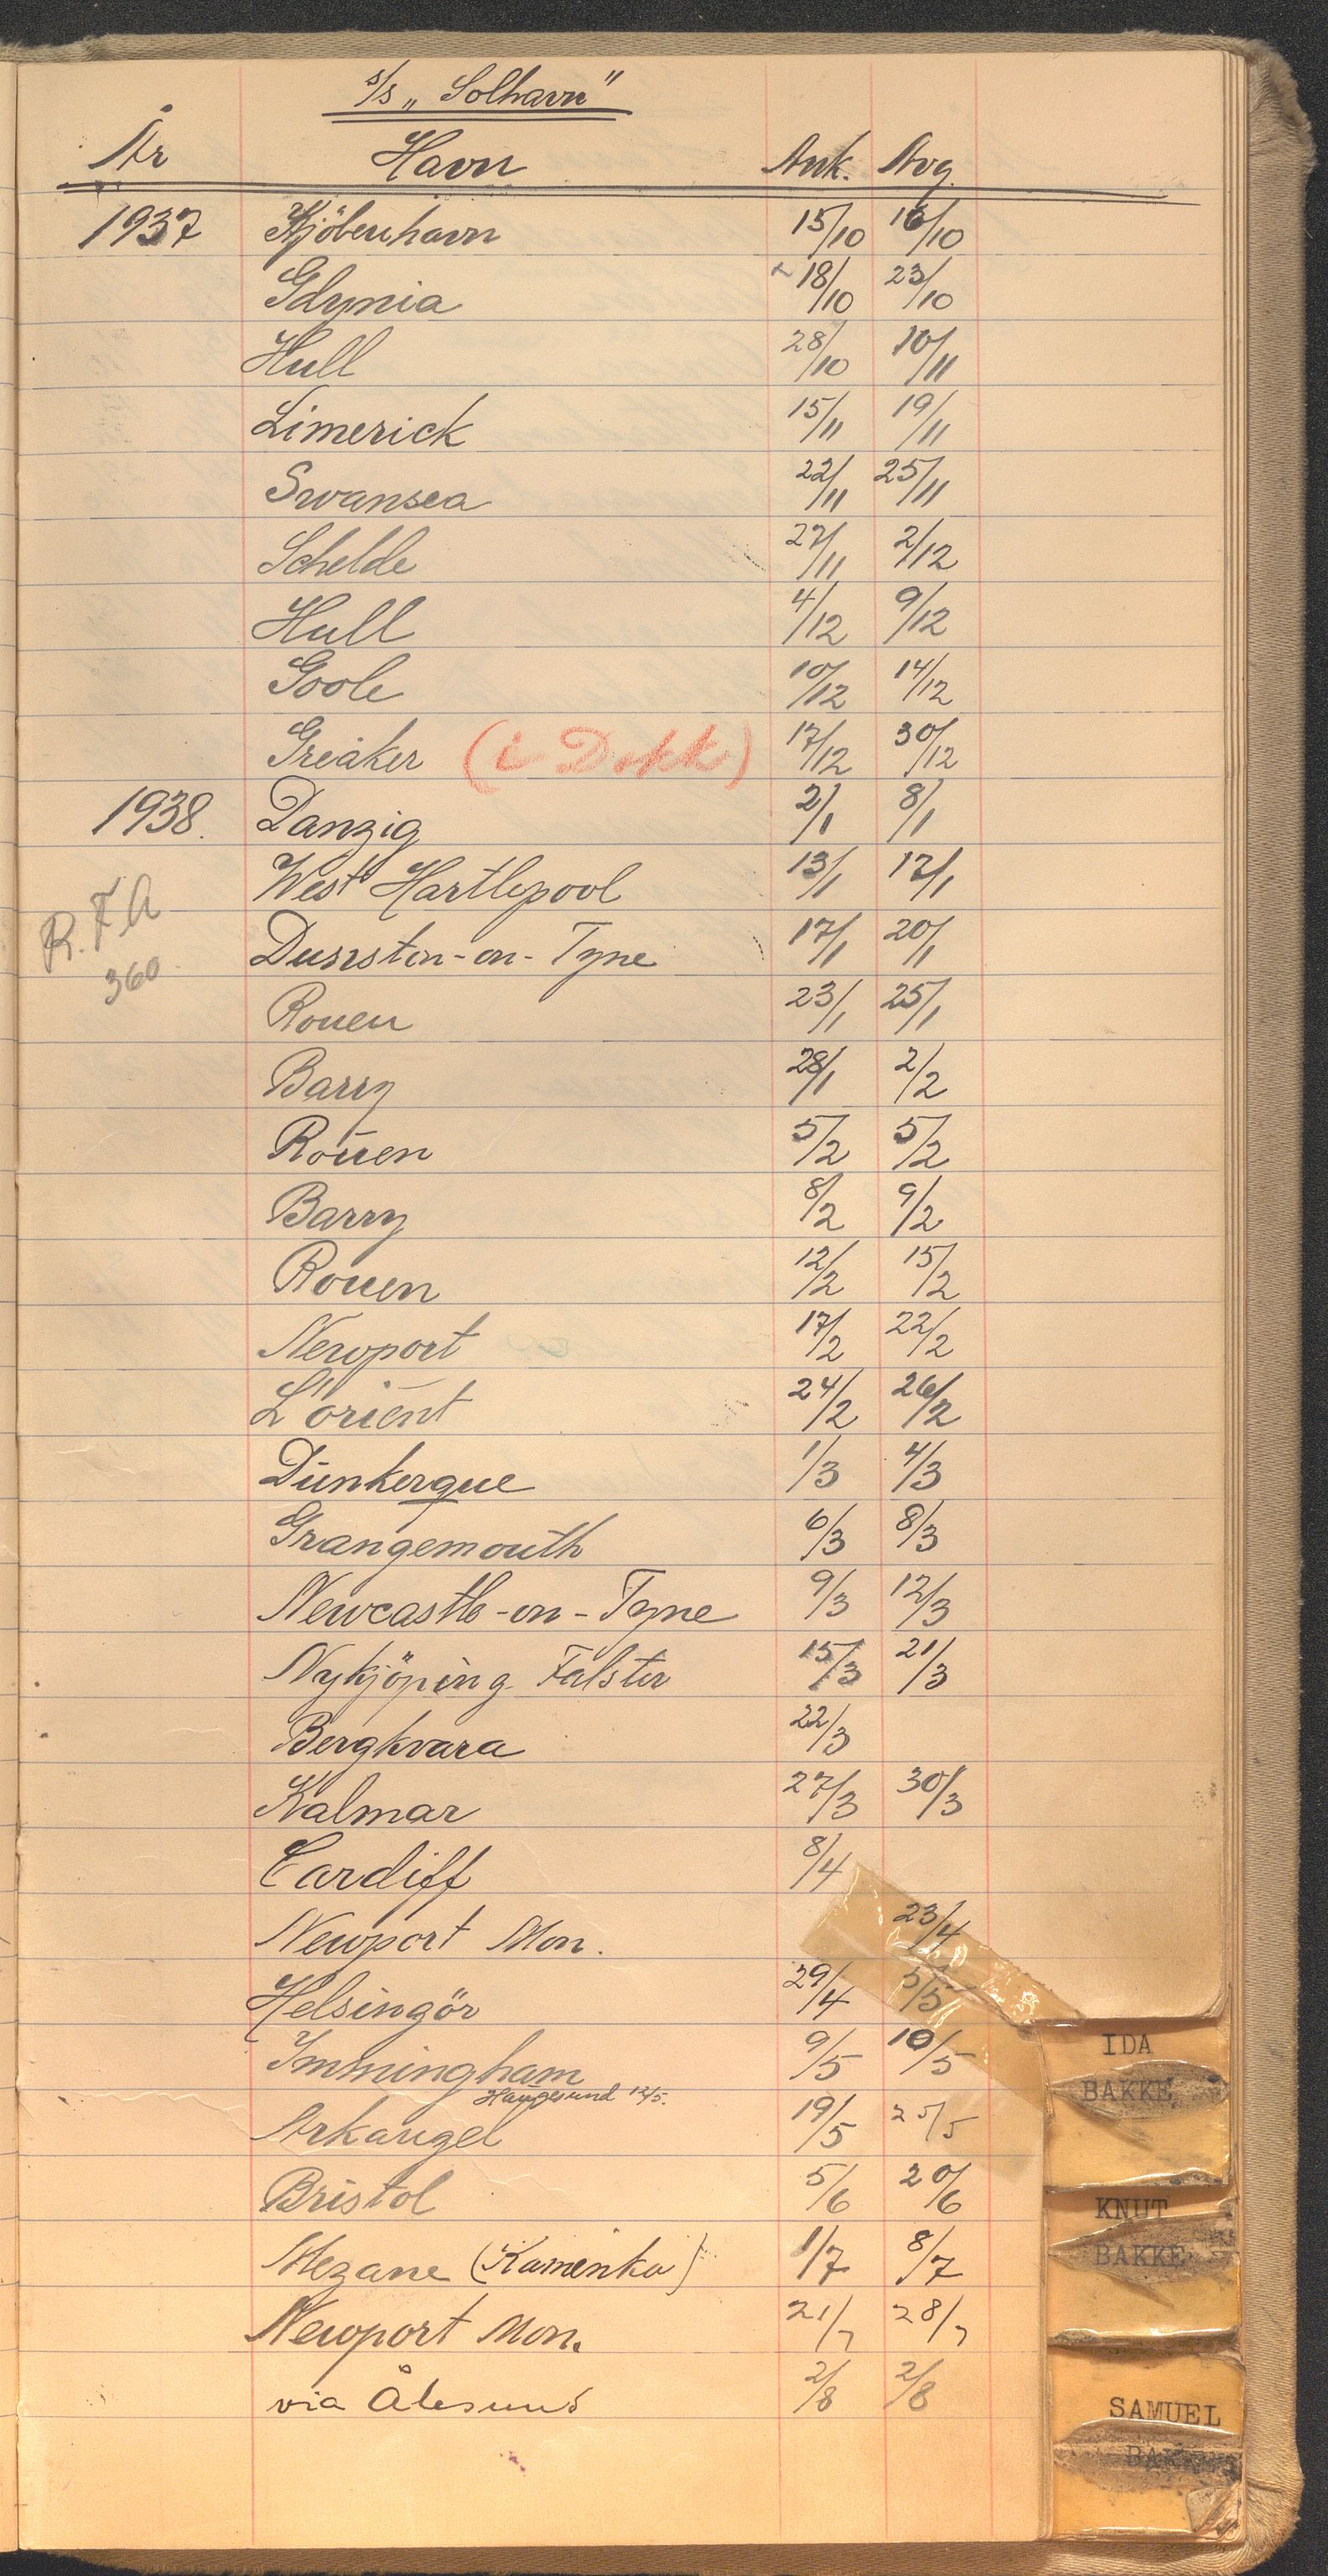 s/s „Solhavn"
År Havn Ank. Avg.
1937 Kjöbenhavn 15/10 16/10
Gdynia 18/10 23/10
Hull 28/10 10/11
Limerick 15/11 19/11
Swansea 22/11 25/11
Schelde 27/11 2/12
Hull 4/12 9/12
Goole 10/12 14/12
Greåker (i Dokk) 17/12 30/12
1938. Danzig 2/1 8/1
West Hartlepool 13/1 17/1
R.F.A
Dunston-on-Tyne 17/1 20/1
360
Rouen 23/1 25/1
Barry 28/1 2/2
Rouen 5/2 5/2
Barry 8/2 9/2
Rouen 12/2 15/2
Newport 17/2 22/2
L'orient 24/2 26/2
Dunkerque 1/3 4/3
Grangemouth 6/3 8/3
Newcastle-on-Tyne 9/3 12/3
Nykjöping Falster 15/3 21/3
Bergkvara 22/3
Kalmar 27/3 30/3
Cardiff 8/4
Newport Mon. 23/4
Helsingör 29/4 5/5
Immingham 9/5 10/5
Haugesund 12/5.
Arkangel 19/5 25/5
Bristol 5/6 20/6
Mezane (Kamenka) 1/7 8/7
Newport Mon. 21/7 28/7
via Ålesund 2/8 2/8
IDA
BAKKE
KNUT
BAKKE
SAMUEL
BAKKE